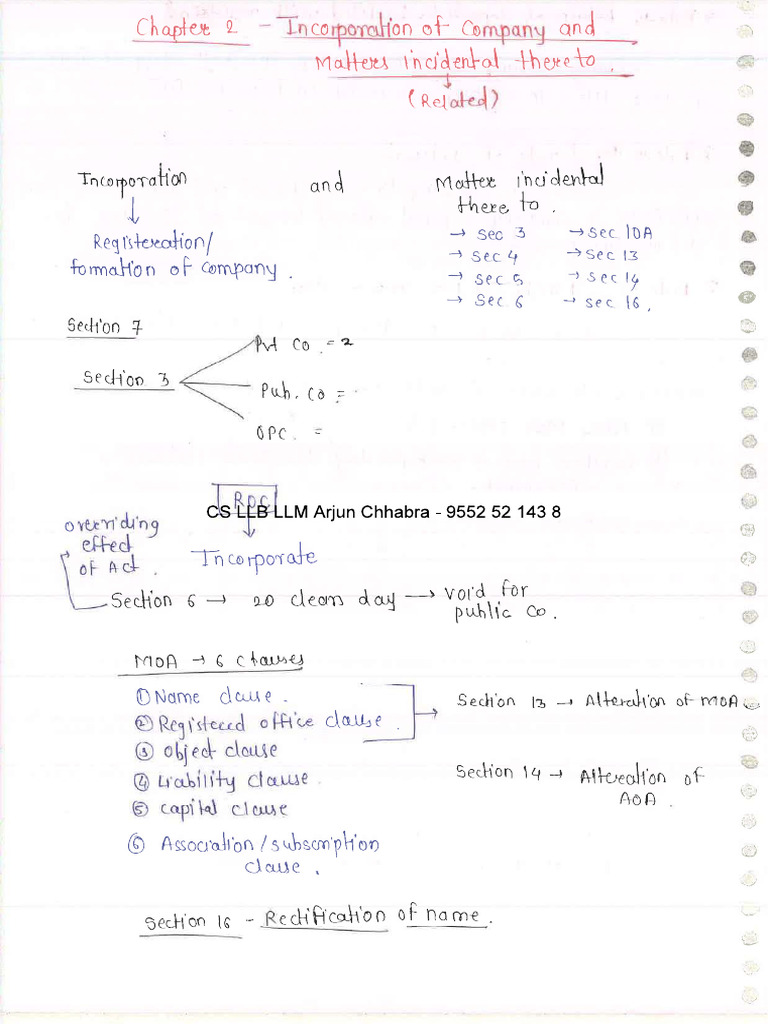 Chapter 2 - Incorporation of Company and
Matters incidental thereto.
(Related)
Incorporation and Matter incidental
there to.
Registeration/
formation of company.
→ sec 3 → sec 10A
→ sec 4 → sec 13
→ sec 5 → sec 14
→ sec 6 → sec 16.
Section 7
Section 3
Pvt Co. = 2
Pub. Co =
OPC. =
ROC
CS LLB LLM Arjun Chhabra - 9552 52 143 8
Incorporate
overriding
effect
of Act.
Section 6 → 20 clear day → void for
public Co.
MOA → 6 clauses
① Name clause.
② Registered office clause.
③ object clause
④ Liability clause.
⑤ capital clause
⑥ Association/subscription
clause.
Section 13 → Alteration of MOA
Section 14 → Altereation of
AOA.
Section 16 - Rectification of name.